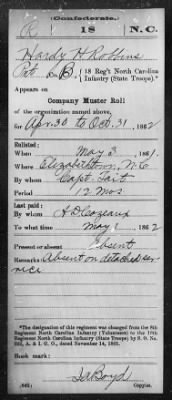 Confederate.
R 18 N.C.
Hardy H Robbins
Pvt Co B, { 18 Reg't North Carolina
Infantry (State Troops).*
Appears on
Company Muster Roll
of the organization named above,
for Apr. 30 to Oct. 31, 1862
Enlisted:
When May 3, 1861.
Where Elizabethtown, N.C.
By whom Capt. Tait
Period 12 Mos
Last paid:
By whom A D Cazeaux
To what time May 1, 1862
Present or absent Absent
Remarks Absent on detached ser
vice
*The designation of this regiment was changed from the 8th
Regiment North Carolina Infantry (Volunteers) to the 18th
Regiment North Carolina Infantry (State Troops) by S. O. No.
222, A. & I. G. O., dated November 14, 1861.
Book mark:
(642)
Boyd
Copyist.